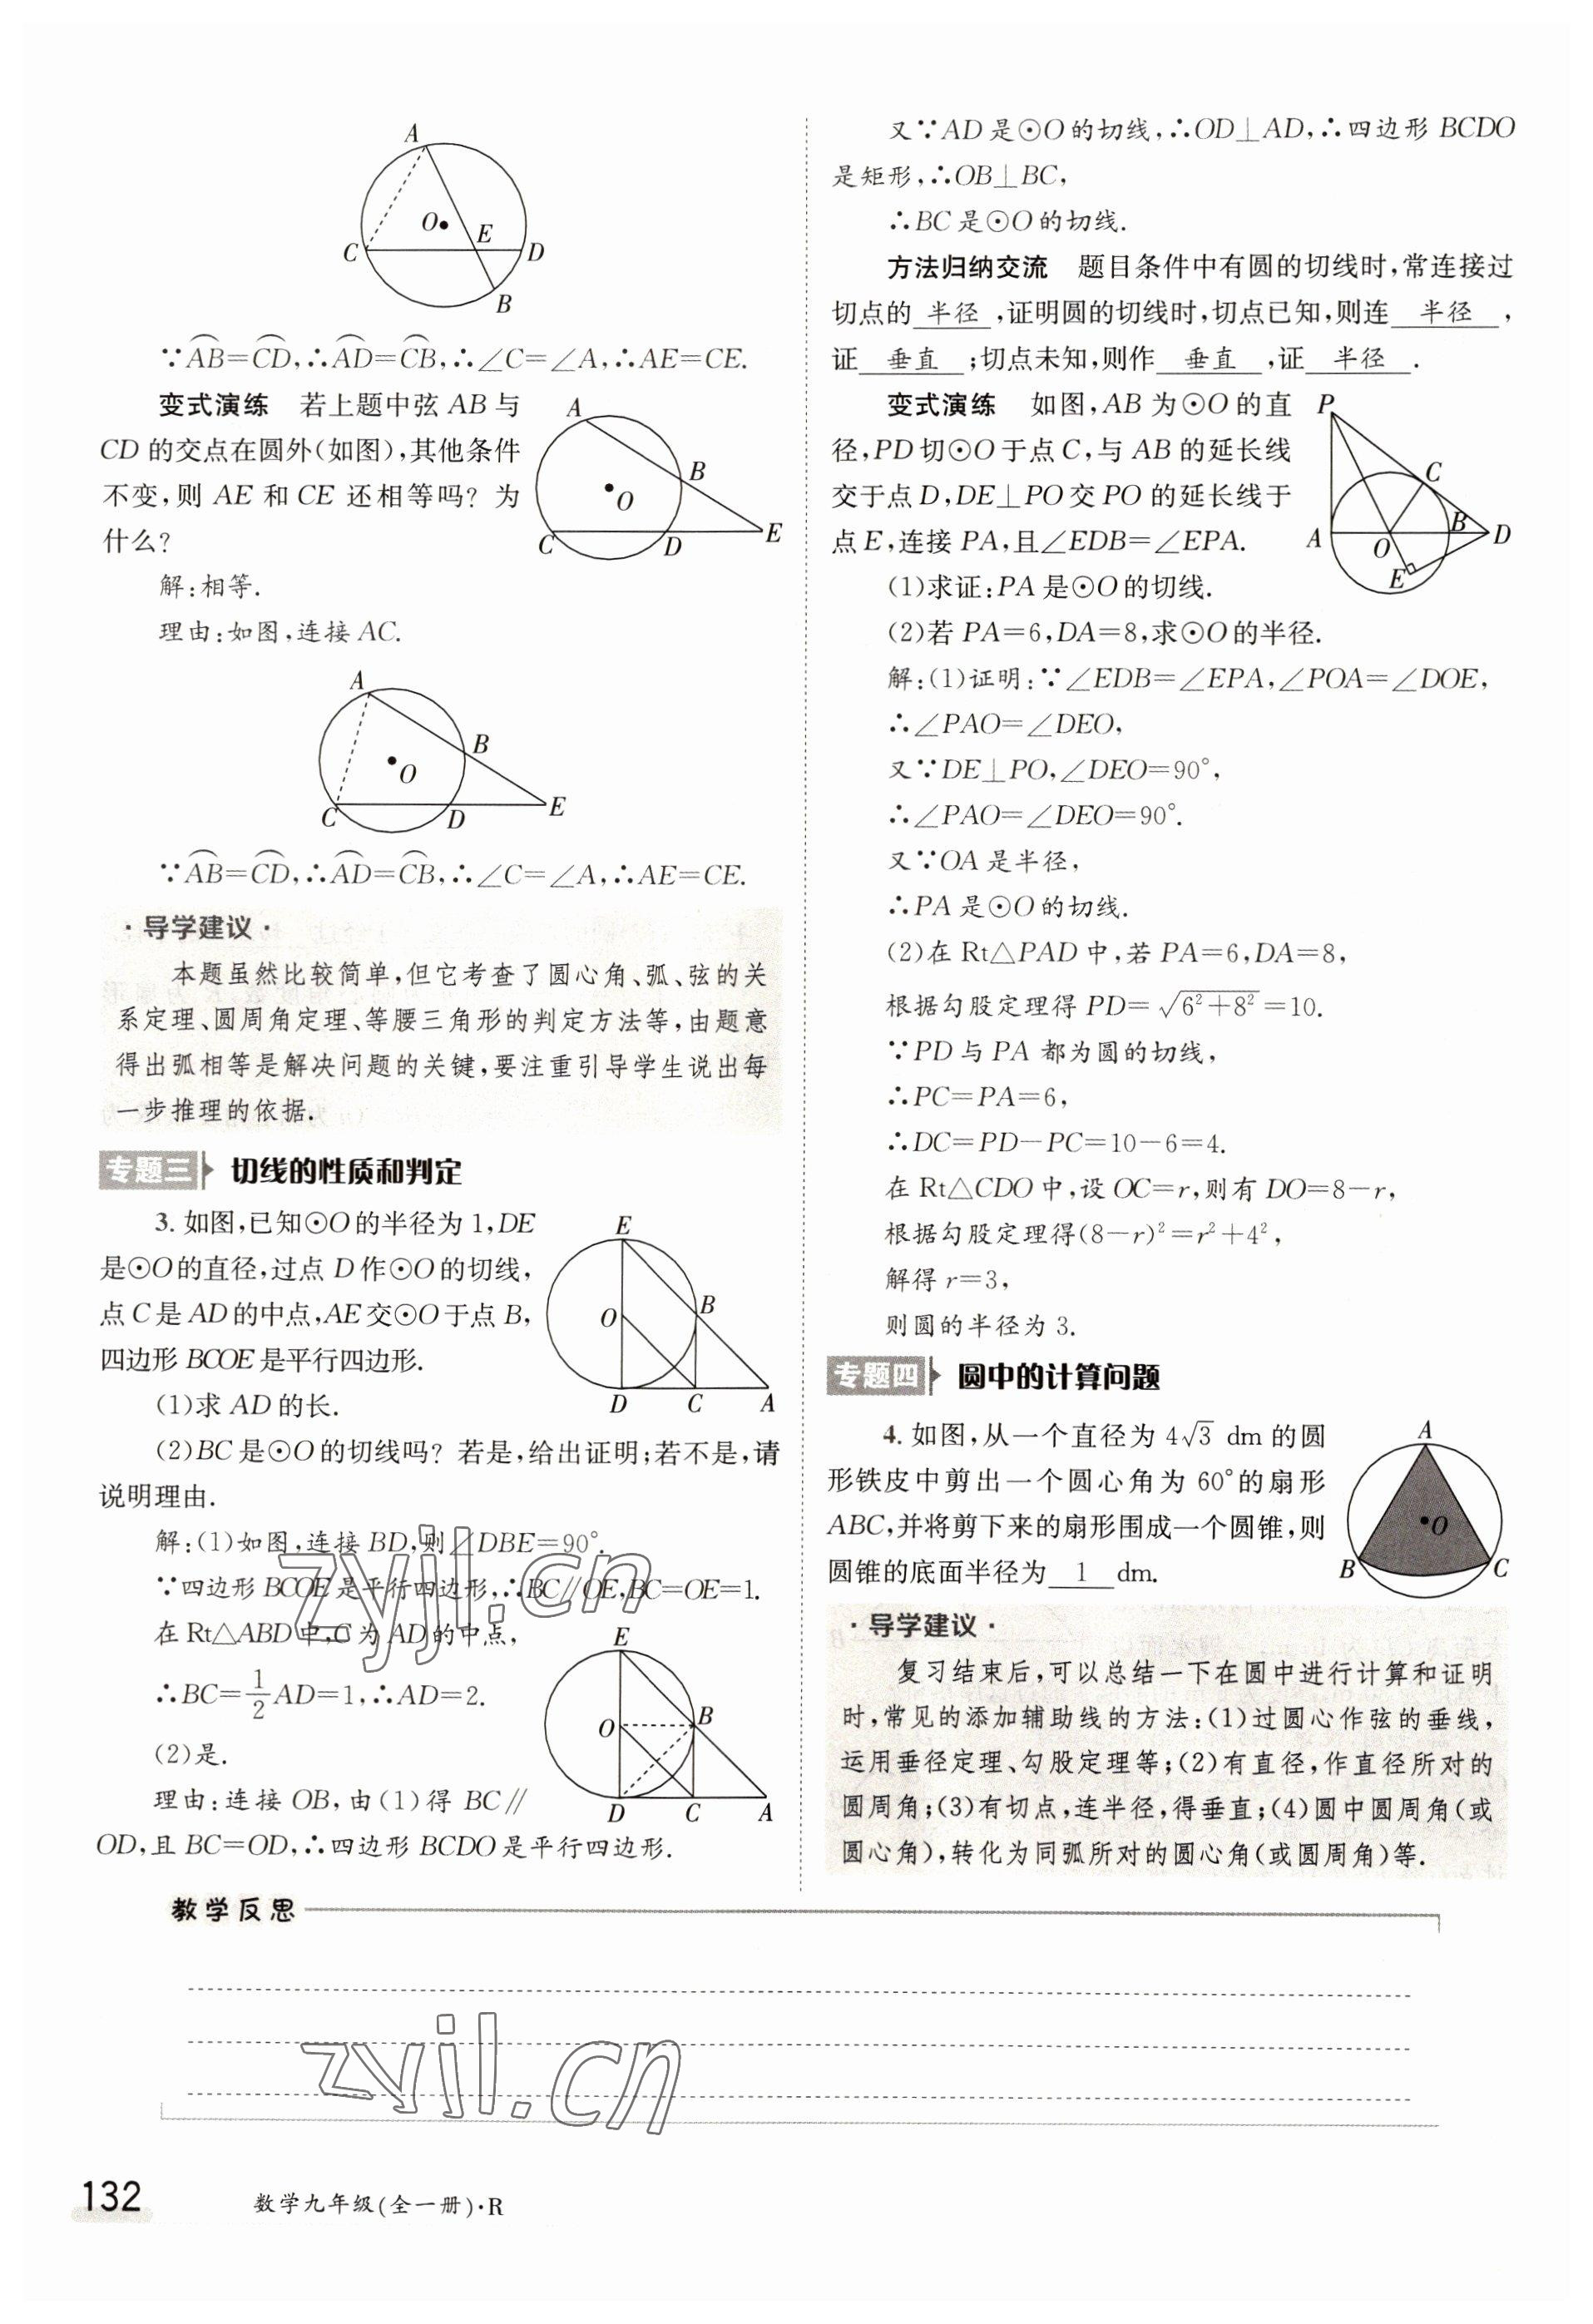 A
O
E
C
D
B
∵AB⌒=CD⌒,∴AD⌒=CB⌒,∴∠C=∠A,∴AE=CE.
变式演练 若上题中弦 AB 与
CD 的交点在圆外(如图),其他条件
不变,则 AE 和 CE 还相等吗? 为
什么?
A
B
O
C
D
E
解:相等.
理由:如图,连接 AC.
A
B
O
C
D
E
∵AB⌒=CD⌒,∴AD⌒=CB⌒,∴∠C=∠A,∴AE=CE.
·导学建议·
本题虽然比较简单,但它考查了圆心角、弧、弦的关
系定理、圆周角定理、等腰三角形的判定方法等,由题意
得出弧相等是解决问题的关键,要注重引导学生说出每
一步推理的依据.
专题三 切线的性质和判定
3. 如图,已知⊙O的半径为 1,DE
是⊙O的直径,过点 D作⊙O的切线,
点 C是 AD的中点,AE交⊙O于点 B,
四边形 BCOE是平行四边形.
E
O
B
D
C
A
(1)求 AD 的长.
(2)BC是⊙O的切线吗? 若是,给出证明;若不是,请
说明理由.
解:(1)如图,连接 BD,则∠DBE=90°.
∵四边形 BCOE是平行四边形,∴BC∥OE,BC=OE=1.
在 Rt△ABD中,C为 AD的中点,
∴BC=1/2AD=1,∴AD=2.
(2)是.
理由:连接 OB,由(1)得 BC∥
OD,且 BC=OD,∴四边形 BCDO是平行四边形.
E
O
B
D
C
A
又∵AD是⊙O的切线,∴OD⊥AD,∴四边形 BCDO
是矩形,∴OB⊥BC,
∴BC是⊙O的切线.
方法归纳交流 题目条件中有圆的切线时,常连接过
切点的 半径 ,证明圆的切线时,切点已知,则连 半径 ,
证 垂直 ;切点未知,则作 垂直 ,证 半径 .
变式演练 如图,AB为⊙O的直
径,PD切⊙O于点C,与 AB 的延长线
交于点 D,DE⊥PO 交 PO 的延长线于
点 E,连接 PA,且∠EDB=∠EPA.
P
C
A
O
B
D
E
(1)求证:PA是⊙O的切线.
(2)若 PA=6,DA=8,求⊙O的半径.
解:(1)证明:∵∠EDB=∠EPA,∠POA=∠DOE,
∴∠PAO=∠DEO,
又∵DE⊥PO,∠DEO=90°,
∴∠PAO=∠DEO=90°.
又∵OA是半径,
∴PA是⊙O的切线.
(2)在 Rt△PAD中,若 PA=6,DA=8,
根据勾股定理得 PD=√(6²+8²)=10.
∵PD与 PA 都为圆的切线,
∴PC=PA=6,
∴DC=PD-PC=10-6=4.
在 Rt△CDO中,设 OC=r,则有 DO=8-r,
根据勾股定理得(8-r)²=r²+4²,
解得 r=3,
则圆的半径为 3.
专题四 圆中的计算问题
4. 如图,从一个直径为 4√3 dm 的圆
形铁皮中剪出一个圆心角为 60°的扇形
ABC,并将剪下来的扇形围成一个圆锥,则
圆锥的底面半径为 1 dm.
A
O
B
C
·导学建议·
复习结束后,可以总结一下在圆中进行计算和证明
时,常见的添加辅助线的方法:(1)过圆心作弦的垂线,
运用垂径定理、勾股定理等;(2)有直径,作直径所对的
圆周角;(3)有切点,连半径,得垂直;(4)圆中圆周角(或
圆心角),转化为同弧所对的圆心角(或圆周角)等.
教学反思
zyjl.cn
zyjl.cn
132
数学九年级(全一册)·R